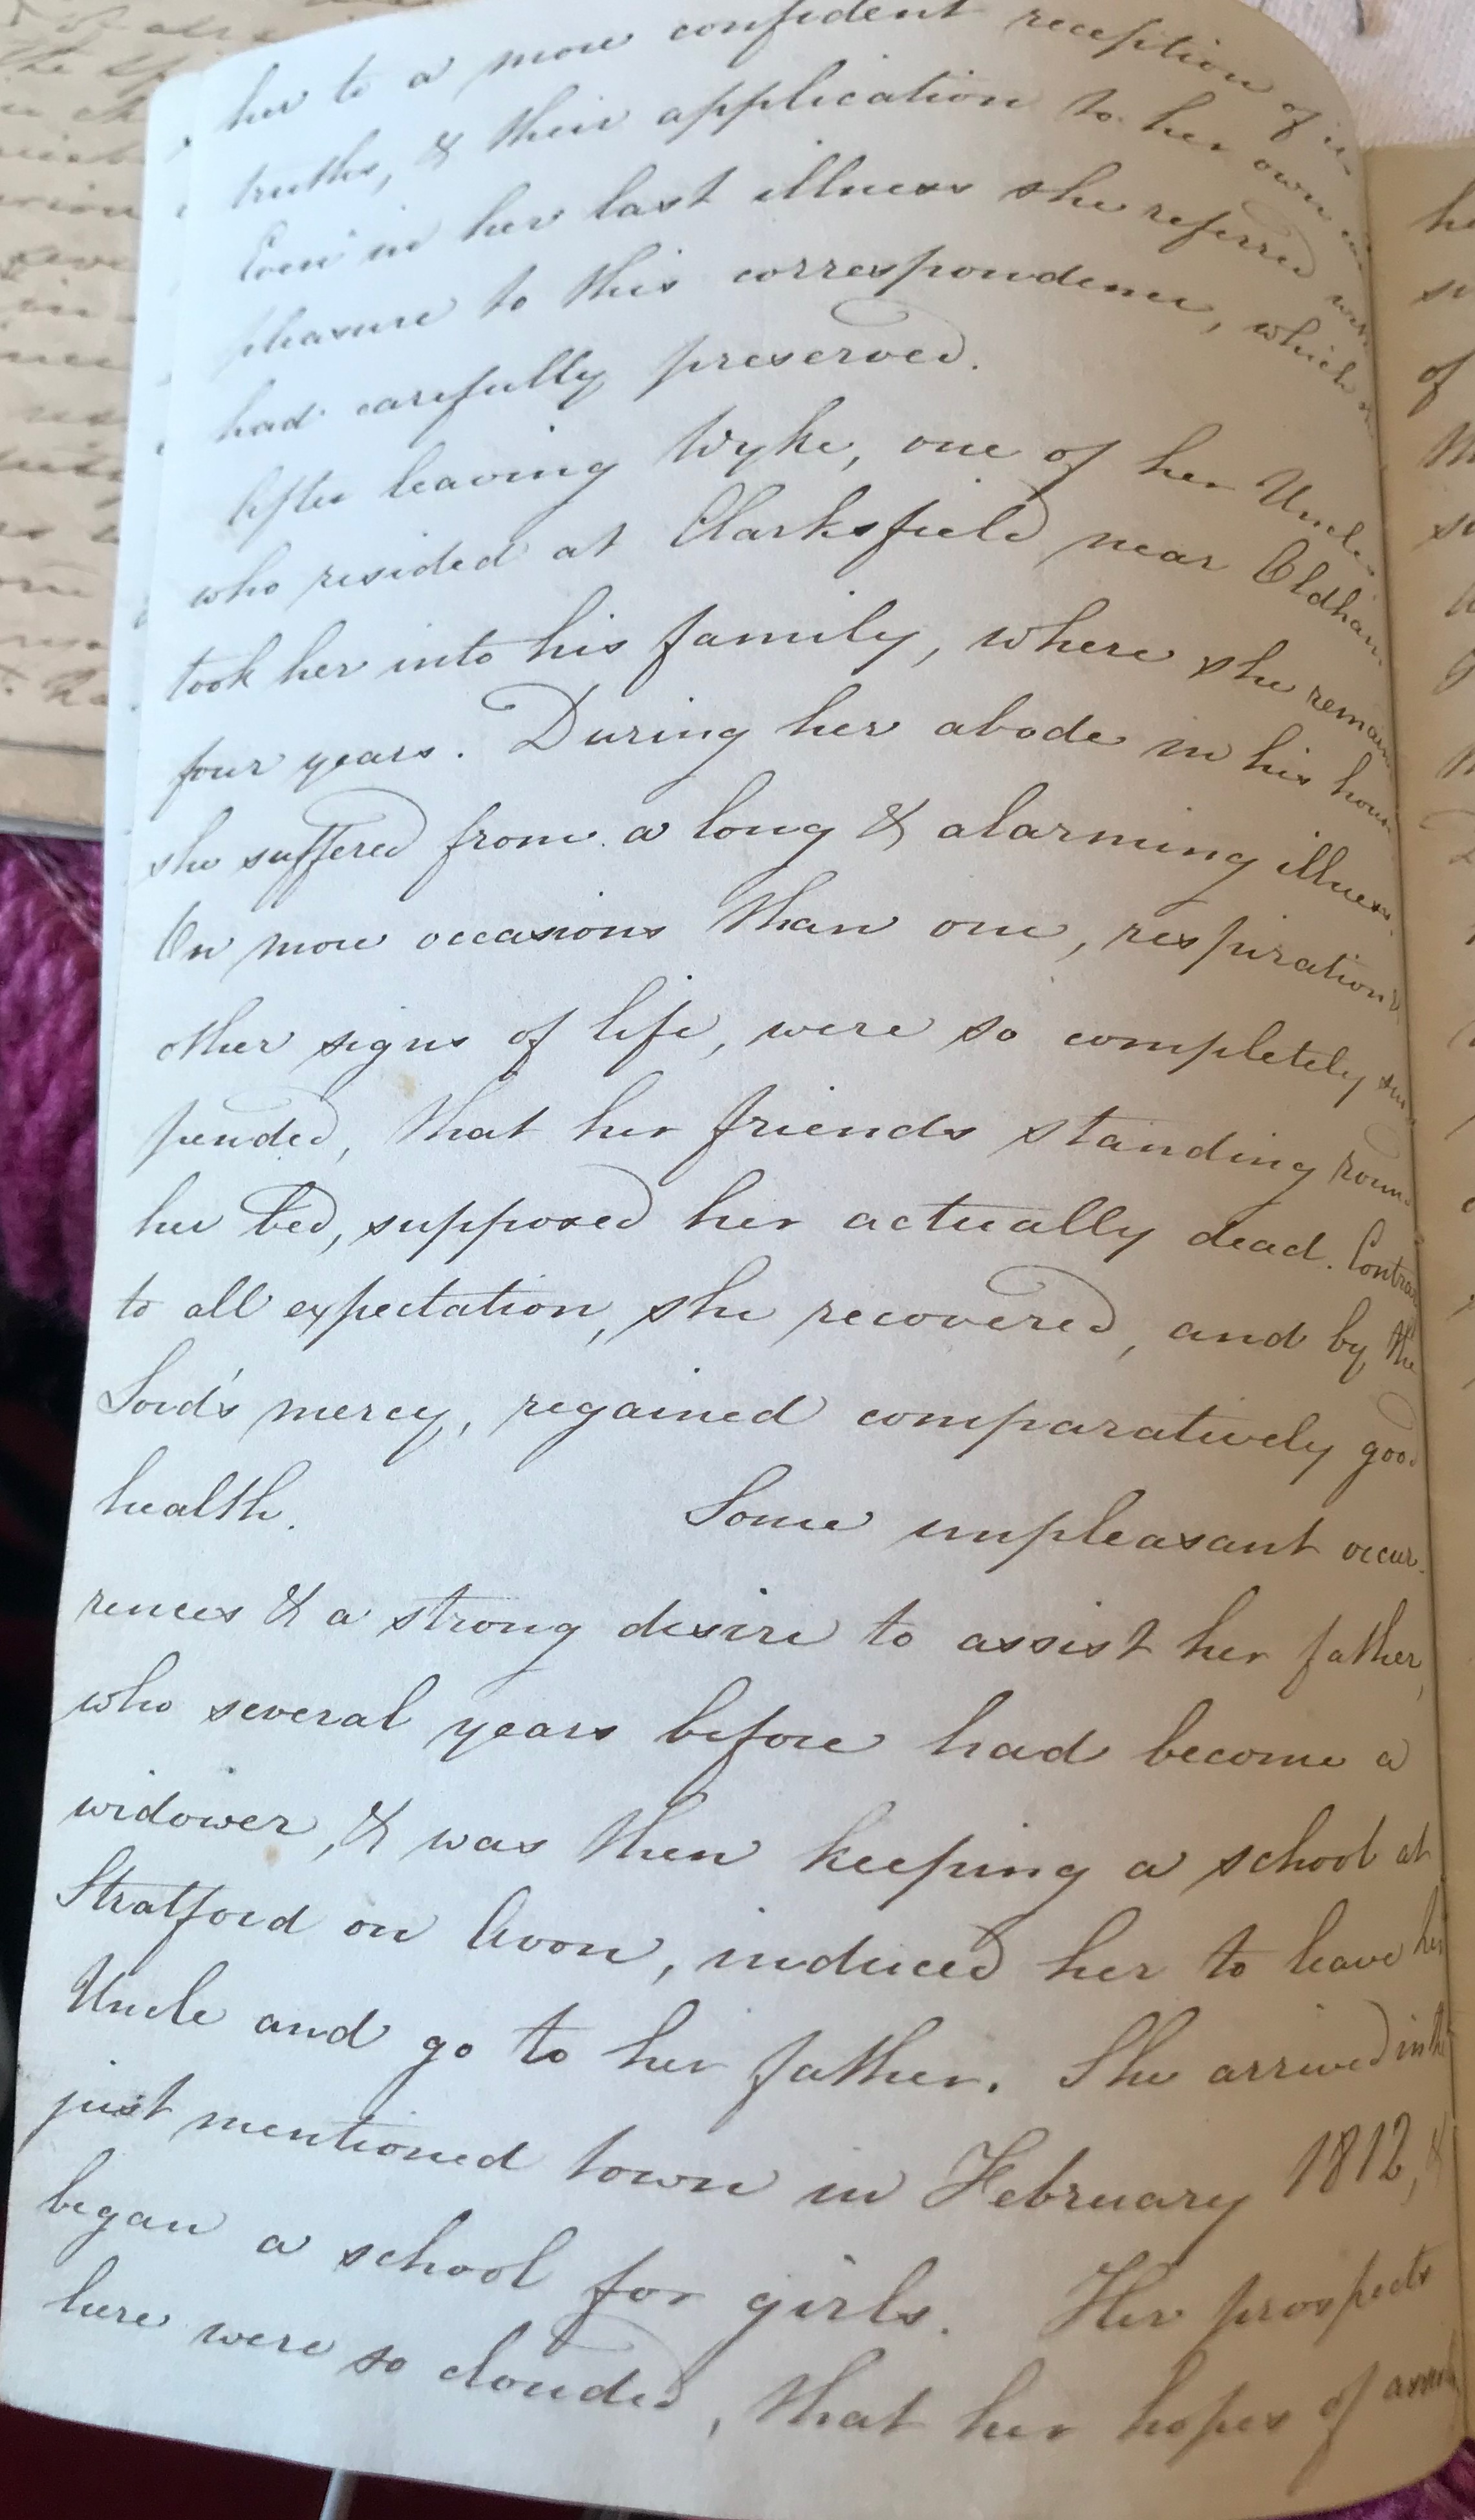 her to a more confident reception of its
truths, & their application to her own
Even in her last illness she referred with
pleasure to this correspondence, which
had carefully preserved.
After leaving Wyke, one of her Uncles
who resided at Clarksfield near Oldham
took her into his family, where she remain
four years. During her abode in his house
she suffered from a long & alarming illness.
On more occasions than one, respiration &
other signs of life, were so completely sus
pended, that her friends standing round
her bed, supposed her actually dead. Contrary
to all expectation, she recovered, and by the
Lord's mercy, regained comparatively good
health. Some unpleasant occur-
rences & a strong desire to assist her father,
who several years before had become a
widower, & was then keeping a school at
Stratford on Avon, induced her to leave her
Uncle and go to her father. She arrived in the
just mentioned town in February 1812, &
began a school for girls. Her prospects
here were so clouded, that her hopes of